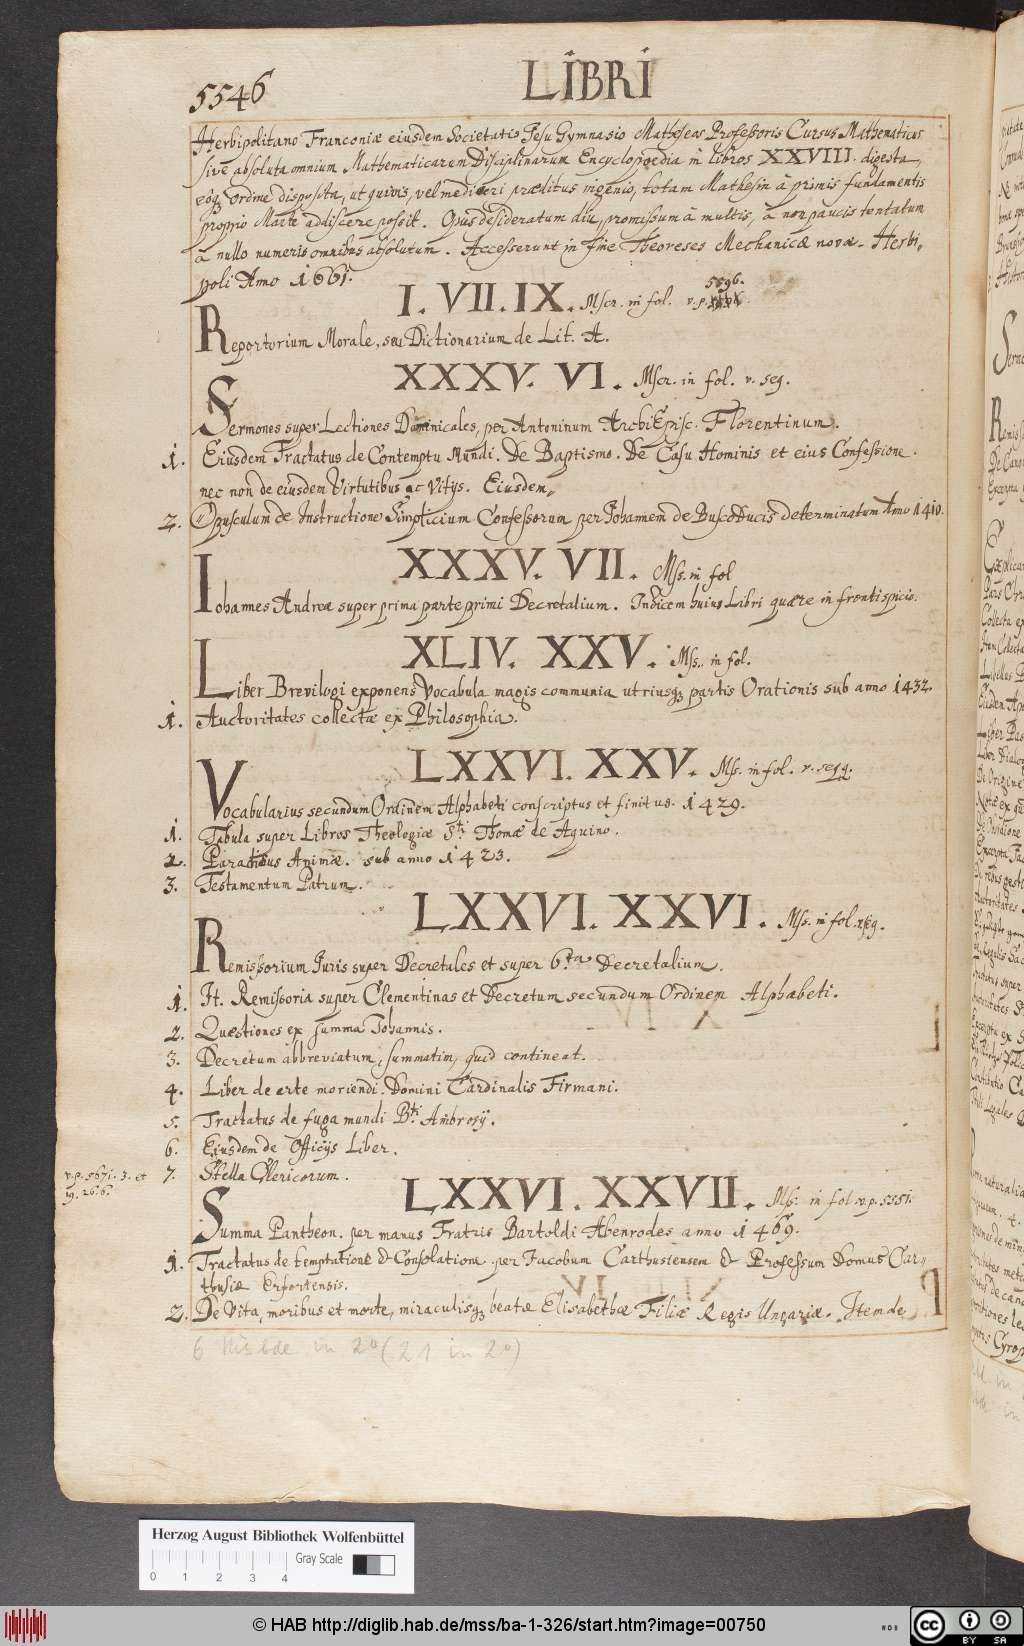 5546
LIBRI
Herbipolitano Franconiæ eiusdem Societatis Jesu Gymnasio Matheseos Professoris Cursus Mathematicus
sive absoluta omnium Mathematicarum Disciplinarum Encyclopœdia in libros XXVIII. digesta,
eoq; ordine disposita, ut quivis, vel mediocri præditus ingenio, totam Mathesin à primis fundamentis
proprio Marte addiscere possit. Opus desideratum diu, promissum à multis, à non paucis tentatum
a nullo numeris omnibus absolutum. Accesserunt in fine Theoreses Mechanicæ novæ. Herbi,
poli Anno 1661.
I. VII. IX. Mscr. in fol. v. p. 5596.
Repertorium Morale, seu Dictionarium de Lit. A.
XXXV. VI. Mscr. in fol. v. seq.
Sermones super Lectiones Dominicales, per Antoninum ArchiEpisc. Florentinum.
1. Eiusdem Tractatus de Contemptu Mundi. De Baptismo. De Casu Hominis et eius Confessione.
nec non de eiusdem Virtutibus ac Vitys. Eiusdem,
2. Opusculum de Instructione Simplicium Confessorum per Johannem de BuscoDucis determinatum Anno 1410.
XXXV. VII. Mss. in fol
Johannes Andreæ super prima parte primi Decretalium. Indicem huius Libri quære in frontispicio.
XLIV. XXV. Mss. in fol.
Liber Brevilogi exponens Vocabula magis communia utriusq; partis Orationis sub anno 1432.
1. Auctoritates collectæ ex Philosophia.
LXXVI. XXV. Mss. in fol. v. seqq.
Vocabularius secundum Ordinem Alphabeti conscriptus et finitus. 1429.
1. Tabula super Libros Theologiæ S.ti Thomæ de Aquino.
2. Paradisus Animæ. sub anno 1423.
3. Testamentum Patrum.
LXXVI. XXVI. Mss. in fol. v. seq.
Remissorium Juris super Decretales et super 6.ta Decretalium.
1. It. Remissoria super Clementinas et Decretum secundum Ordinem Alphabeti.
2. Quæstiones ex summa Johannis.
3. Decretum abbreviatum, summatim, quid contineat.
4. Liber de arte moriendi. Domini Cardinalis Firmani.
5. Tractatus de fuga mundi B.ti Ambrosÿ.
6. Eiusdem de Officijs Liber.
v. p. 5671. 3. et
19. 26.6.
7. Stella Clericorum.
LXXVI. XXVII. Mss. in fol. v. p. 5551.
Summa Pantheon. per manus Fratris Bartoldi Abenrodes anno 1469.
1. Tractatus de temptatione & Consolatione per Jacobum Carthusiensem & Professum Domus Car,
thusiæ Erfortensis.
2. De Vita, moribus et morte, miraculisq; beatæ Elisabethæ Filiæ Regis Ungariæ. Item de
6 in 2° (21 in 2°)
Herzog August Bibliothek Wolfenbüttel
Gray Scale
0 1 2 3 4
© HAB http://diglib.hab.de/mss/ba-1-326/start.htm?image=00750
cc BY SA